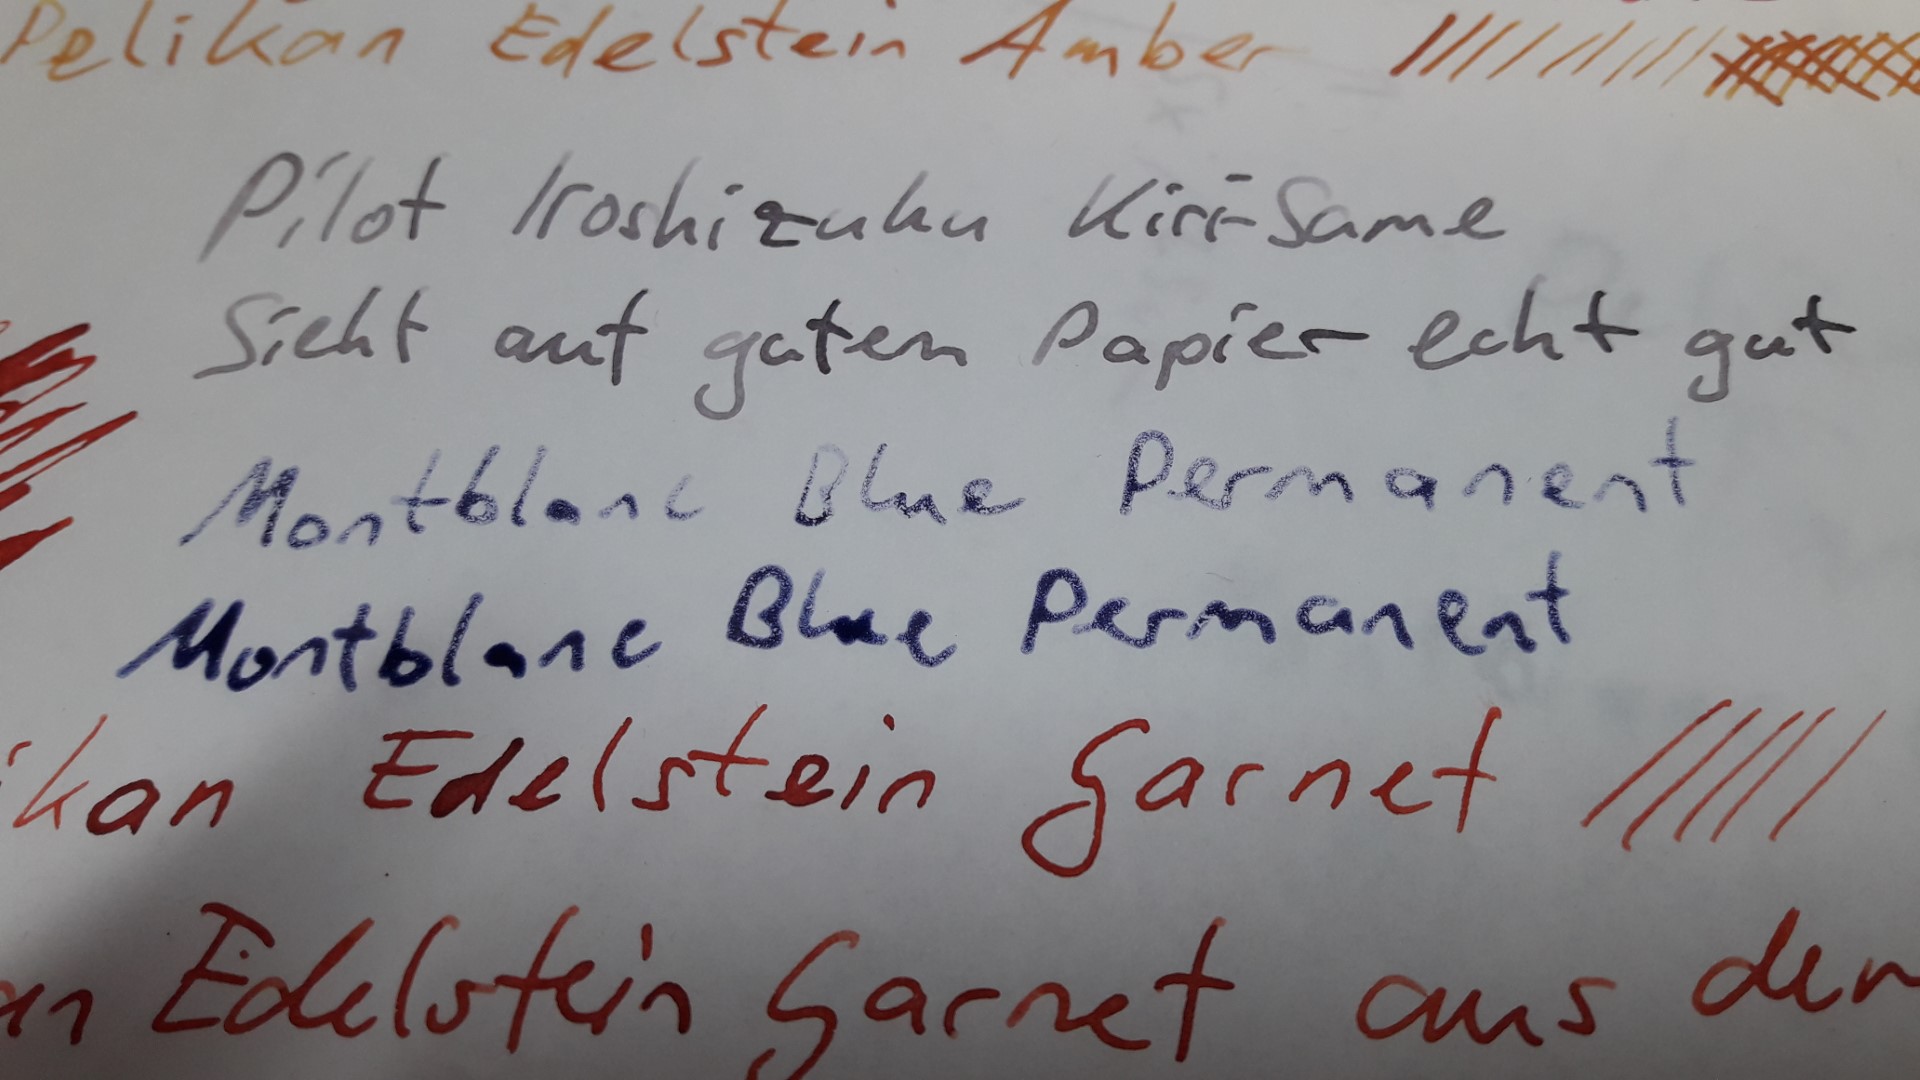 Pelikan Edelstein Amber
Pilot Iroshizuku Kiri-Same
Sieht auf gutem Papier echt gut
Montblanc Blue Permanent
Montblanc Blue Permanent
ikan Edelstein Garnet
an Edelstein Garnet aus dem